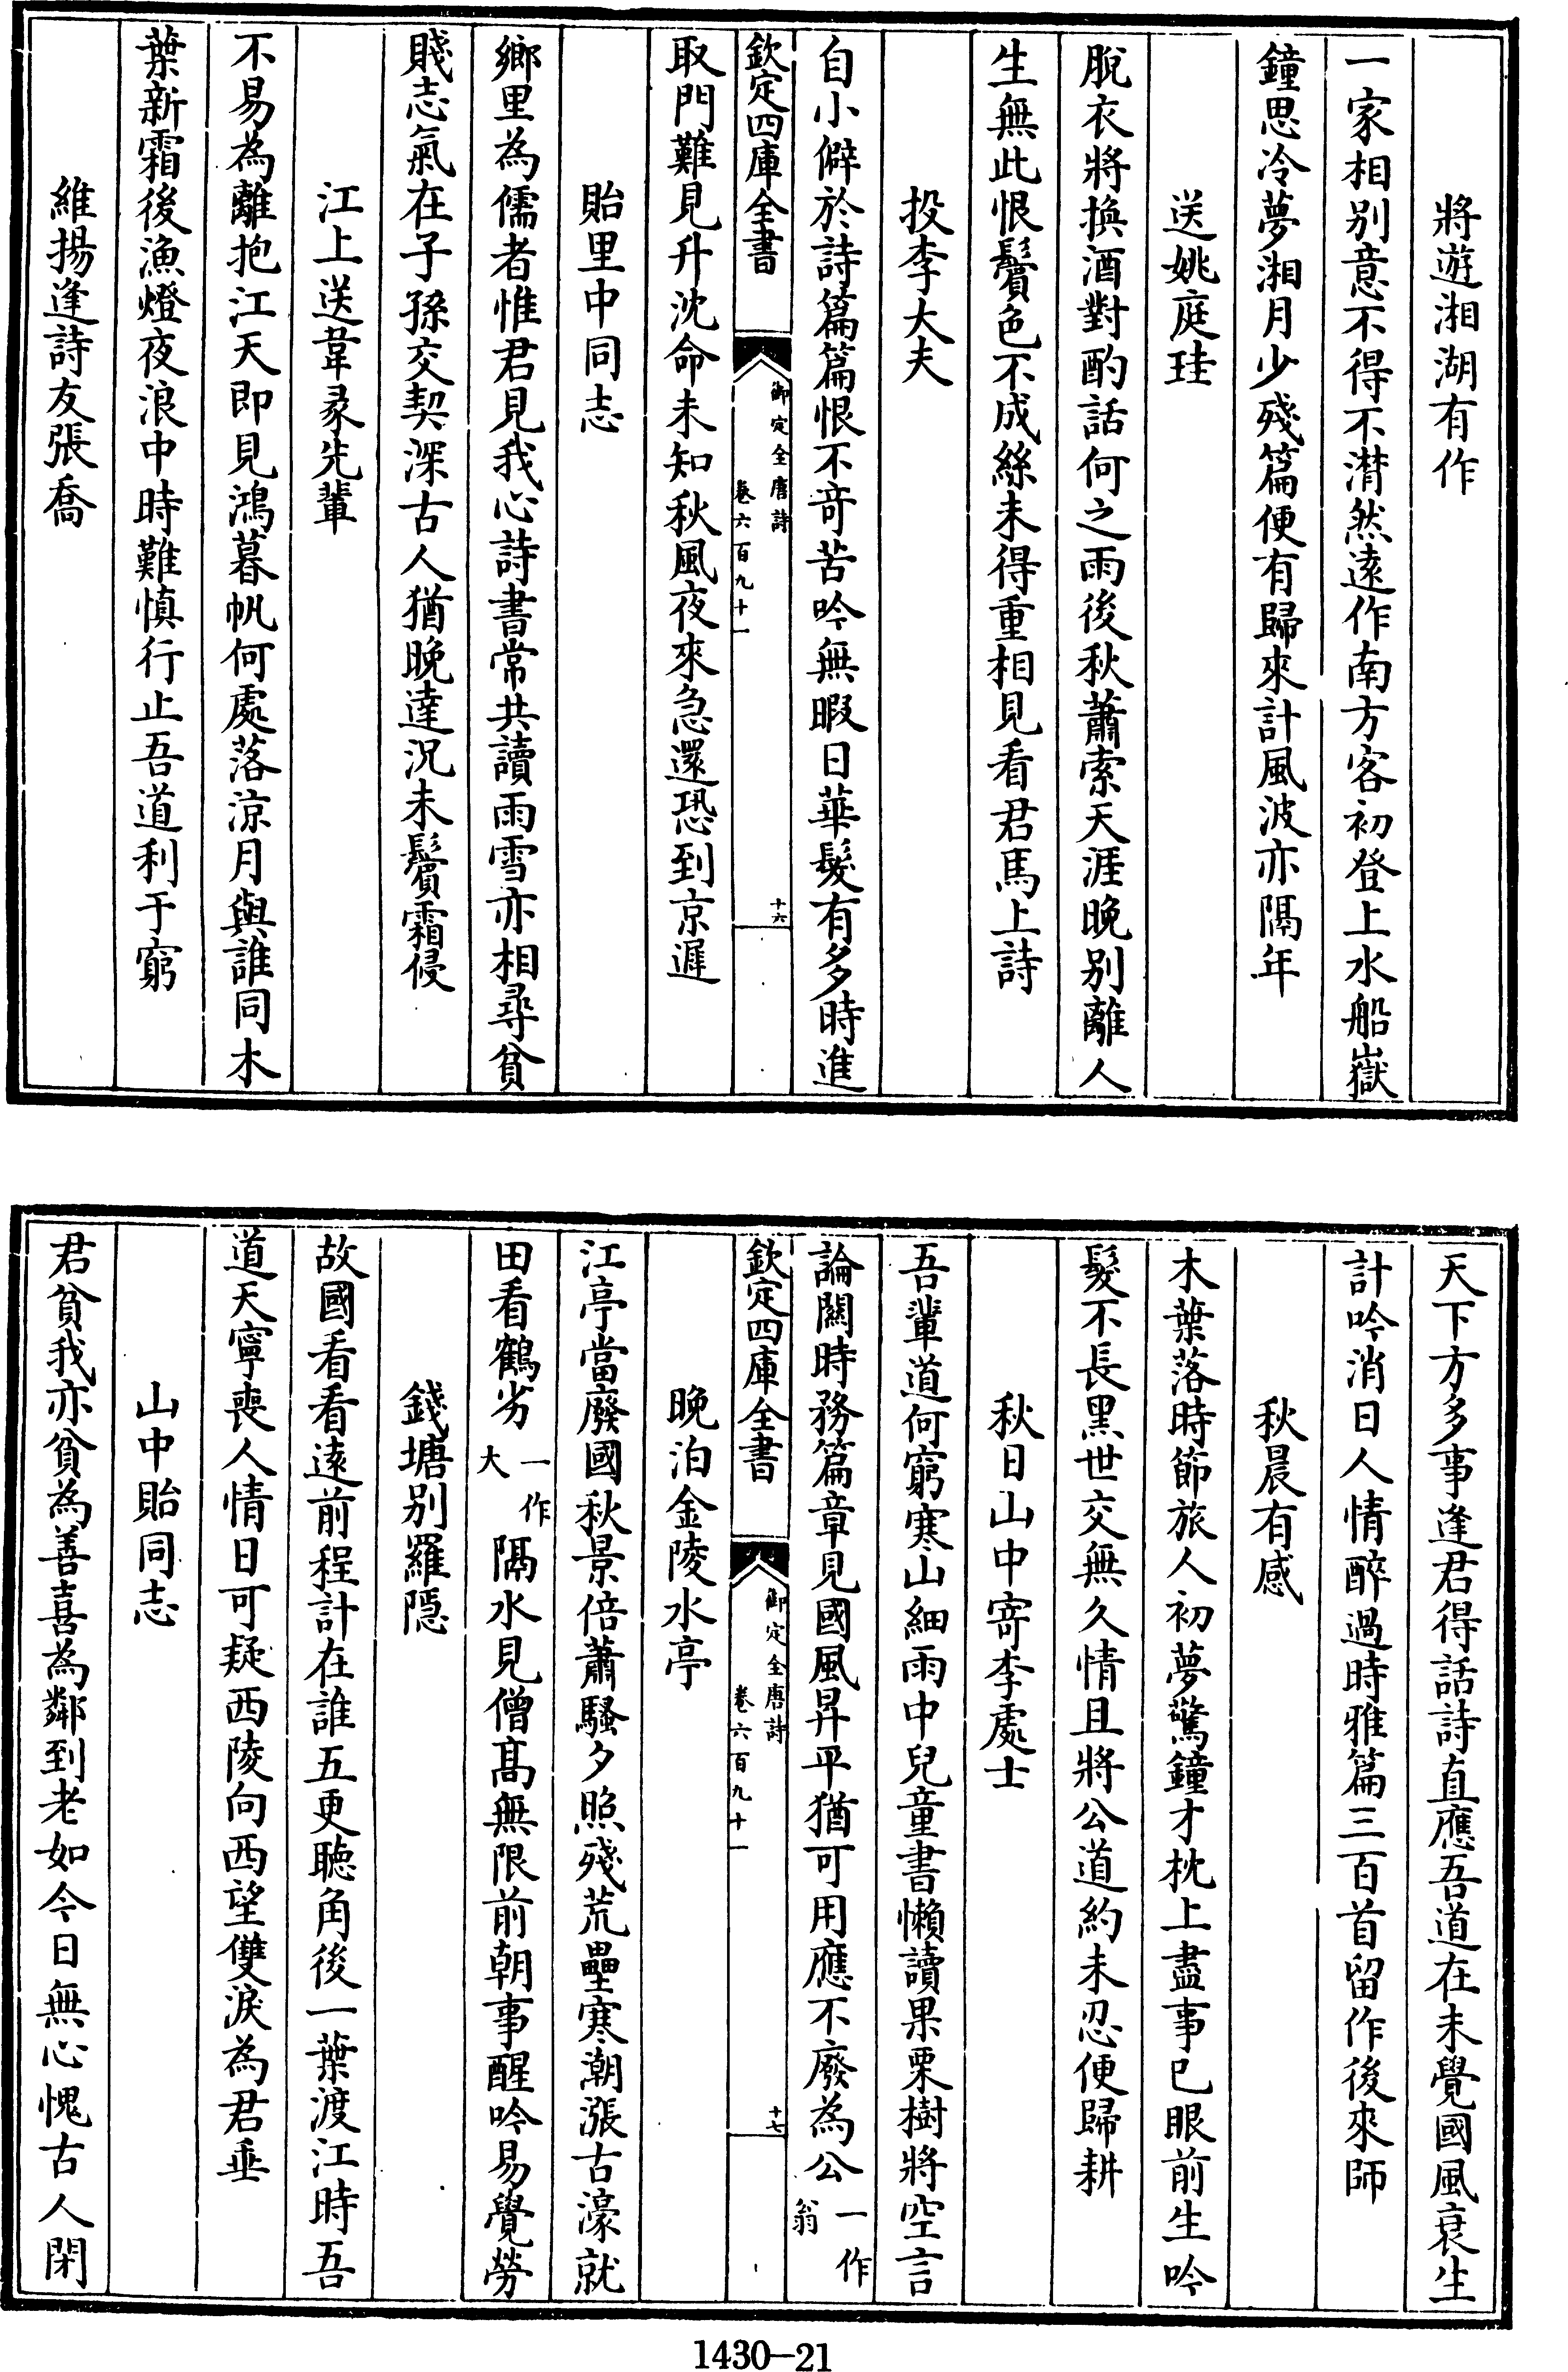 將遊湘湖有作
一家相别意不得不潸然遠作南方客初登上水船嶽
鐘思冷夢湘月少殘篇便有歸來計風波亦隔年
送姚庭珪
脫衣將換酒對酌話何之雨後秋蕭索天涯晚别離人
生無此恨鬢色不成絲未得重相見看君馬上詩
投李大夫
自小僻於詩篇篇恨不竒苦吟無暇日華髮有多時進
欽定四庫全書
御定全唐詩
卷六百九十一
十六
取門難見升沈命未知秋風夜來急還恐到京遲
貽里中同志
鄉里為儒者惟君見我心詩書常共讀雨雪亦相尋貧
賤志氣在子孫交契深古人猶晚達況未鬢霜侵
江上送韋彖先輩
不易為離抱江天即見鴻暮帆何處落涼月與誰同木
葉新霜後漁燈夜浪中時難慎行止吾道利于窮
維揚逢詩友張喬
天下方多事逢君得話詩直應吾道在未覺國風衰生
計吟消日人情醉過時雅篇三百首留作後來師
秋晨有感
木葉落時節旅人初夢驚鐘才枕上盡事已眼前生吟
髮不長黑世交無久情且將公道約未忍便歸耕
秋日山中寄李處士
吾輩道何窮寒山細雨中兒童書懶讀果栗樹將空言
論闗時務篇章見國風昇平猶可用應不廢為公一作翁
欽定四庫全書
御定全唐詩
卷六百九十一
十七
晚泊金陵水亭
江亭當廢國秋景倍蕭騷夕照殘荒壘寒潮漲古濠就
田看鶴劣一作大隔水見僧髙無限前朝事醒吟易覺勞
錢塘别羅隱
故國看看遠前程計在誰五更聽角後一葉渡江時吾
道天寧喪人情日可疑西陵向西望雙淚為君垂
山中貽同志
君貧我亦貧為善喜為鄰到老如今日無心愧古人閉
1430—21